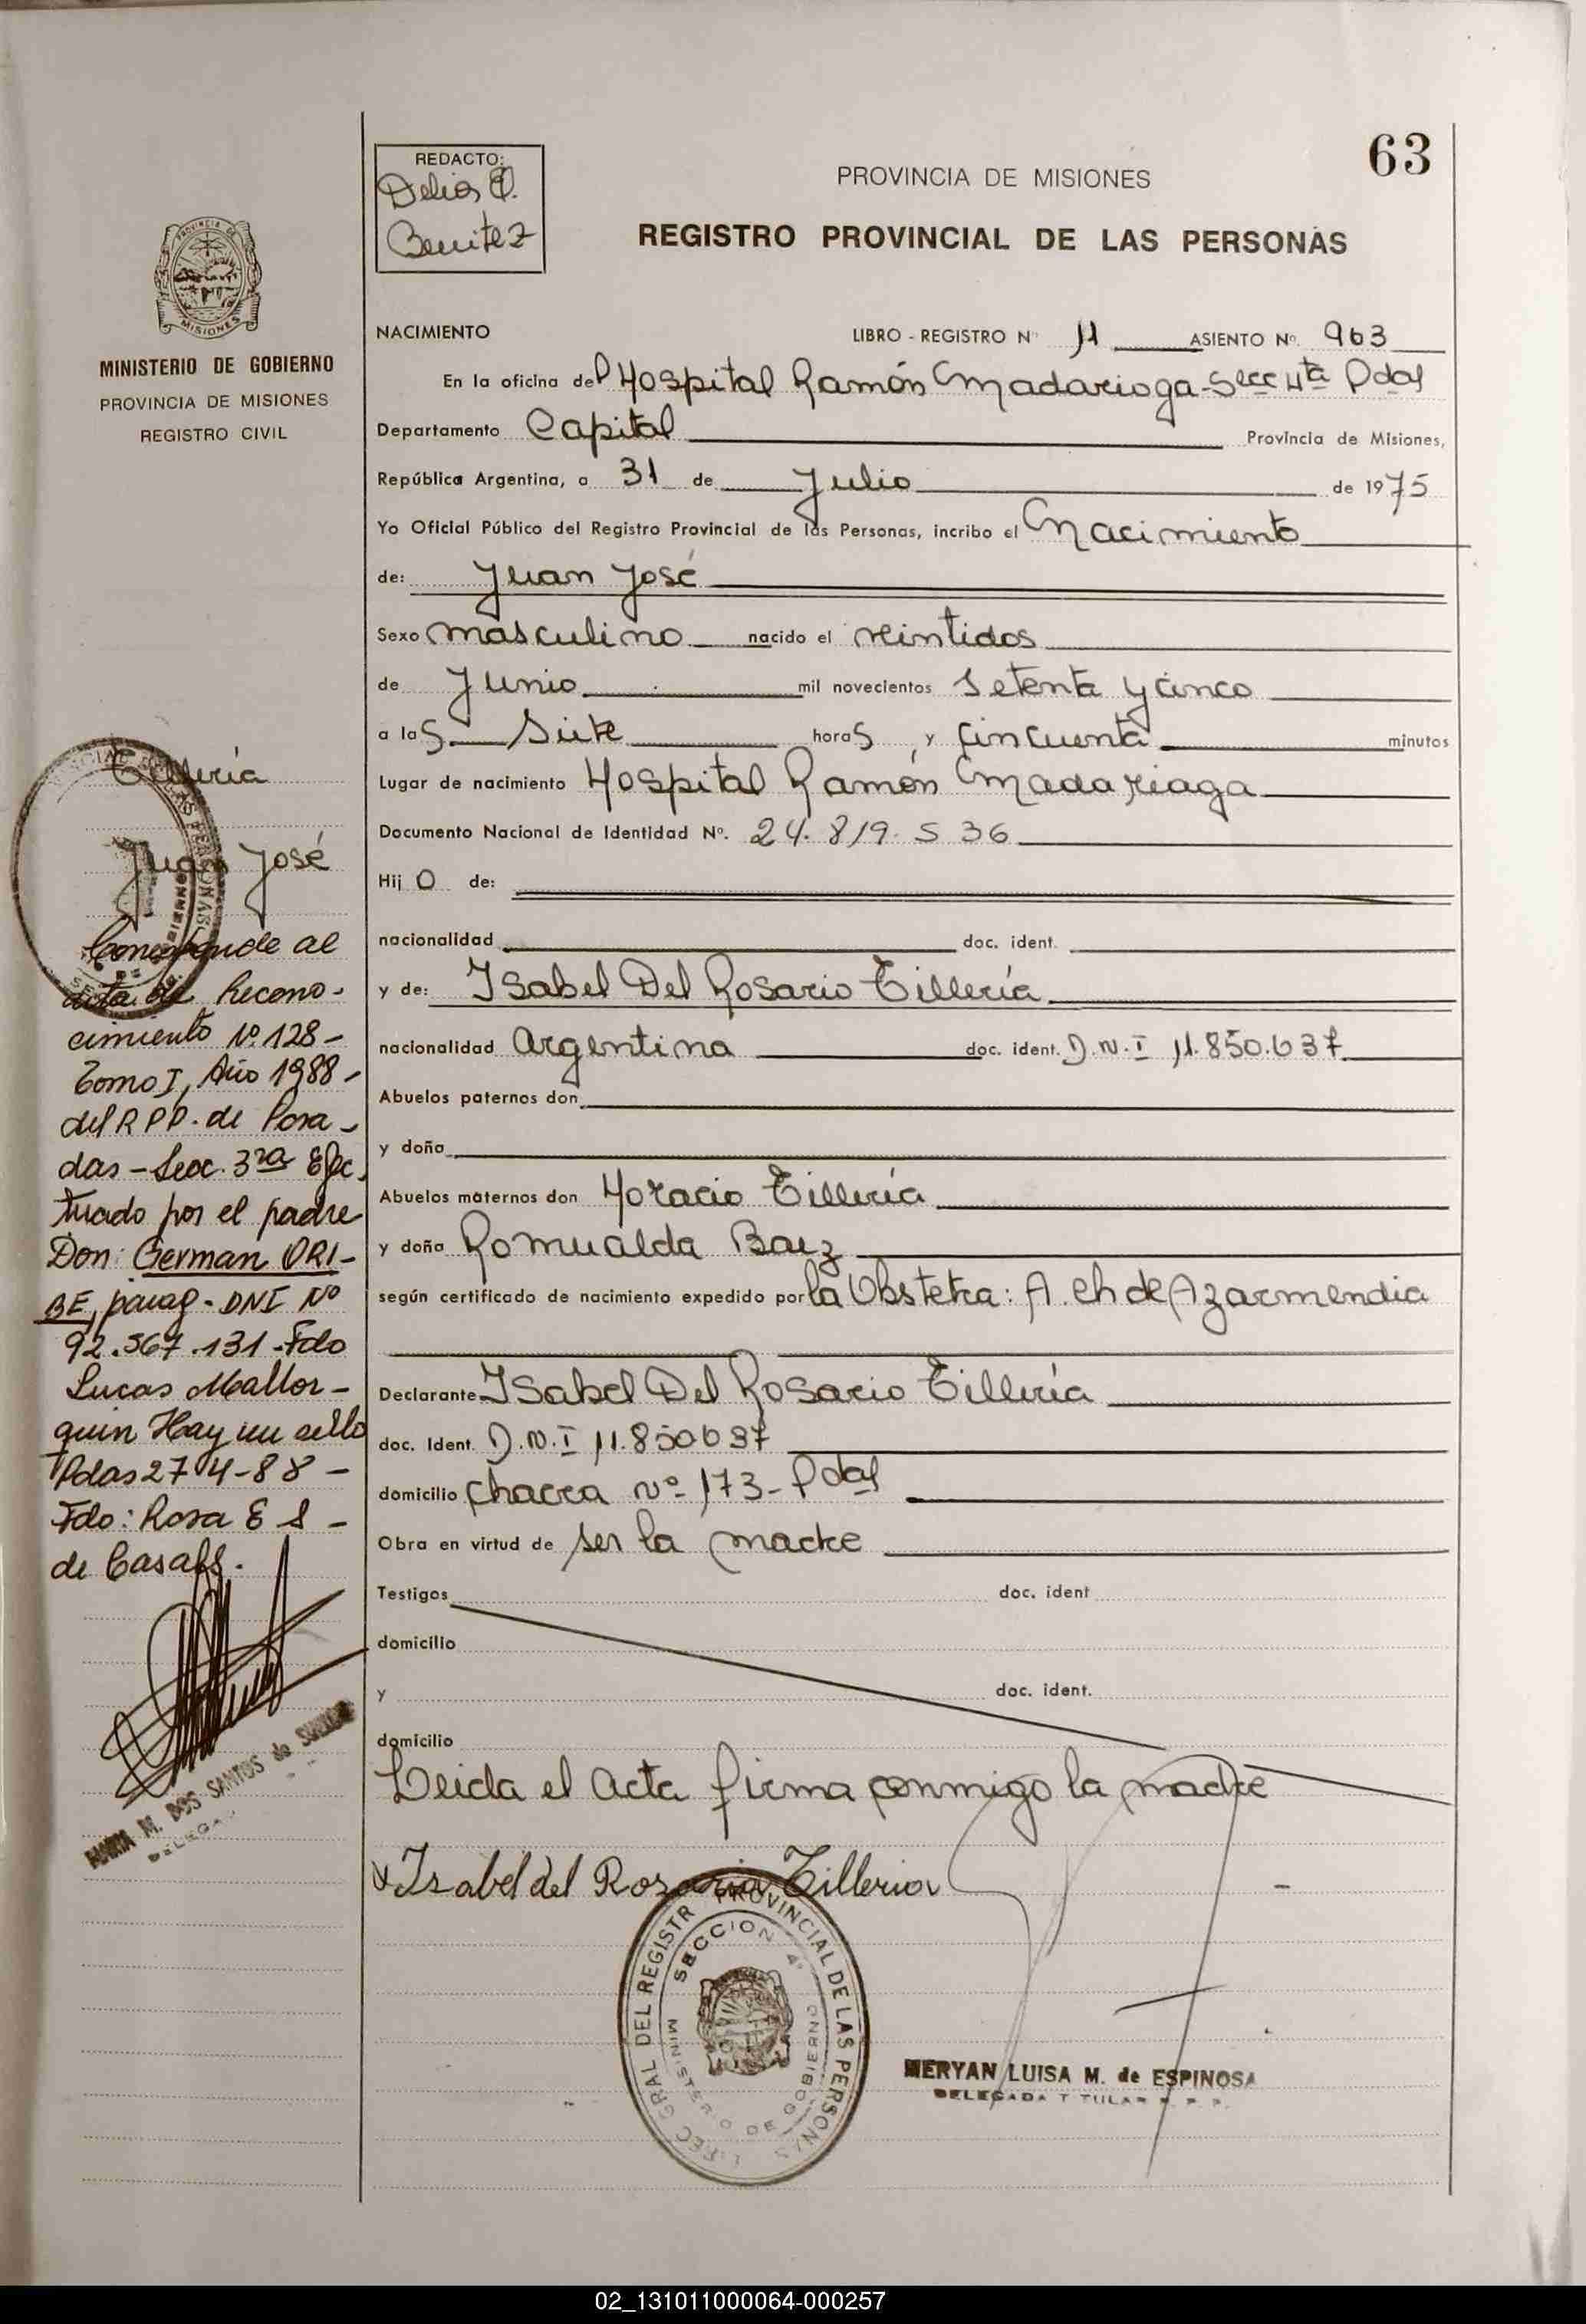 63
REDACTO:
Delios
Benitez
PROVINCIA DE MISIONES
REGISTRO PROVINCIAL DE LAS PERSONAS
PROVINCIA DE
MISIONES
MINISTERIO DE GOBIERNO
PROVINCIA DE MISIONES
REGISTRO CIVIL
NACIMIENTO LIBRO - REGISTRO Nº 11 ASIENTO Nº. 963
En la oficina del Hospital Ramón Madariaga-Secc 4ta Pdas
Departamento Capital Provincia de Misiones,
República Argentina, a 31 de Julio de 1975
Yo Oficial Público del Registro Provincial de las Personas, incribo el Nacimiento
de: Juan José
Sexo masculino nacido el veintidos
de Junio mil novecientos setenta y cinco
a las siete horas y cincuenta minutos
Lugar de nacimiento Hospital Ramón Madariaga
Documento Nacional de Identidad Nº. 24.819.536
Hijo de:
nacionalidad doc. ident.
y de: Isabel Del Rosario Tillería
nacionalidad Argentina doc. ident. D.N.I 11.850.637
Abuelos paternos don
y doña
Abuelos maternos don Horacio Tillería
y doña Romualda Baez
según certificado de nacimiento expedido por la Obstetra: A. Ch de Azarmendia
Declarante Isabel Del Rosario Tillería
doc. Ident. D.N.I 11.850637
domicilio Chacra Nº 173-Pdas
Obra en virtud de ser la madre
Testigos doc. ident
domicilio
y doc. ident.
domicilio
Leida el Acta firma conmigo la madre
x Isabel del Rosario Tilleria
Tillería
Juan José
Corresponde al
acta de Recono-
cimiento Nº 128-
Tomo I, Año 1988-
del R P P. de Posa-
das-Secc. 3ra Efec
tuado por el padre
Don: German ORI-
BE, parag- DNI Nº
92.567.131-Fdo
Lucas Mallor-
quin Hay un sello
Pdas 27-4-88-
Fdo: Rosa E S-
de Casafs.
MARIA M. DOS SANTOS de
DELEGA
GRAL DEL REGISTR PROVINCIAL DE LAS PERSONAS
SECCION 4ª
MINISTERIO DE GOBIERNO
MERYAN LUISA M. de ESPINOSA
DELEGADA TITULAR R. P. P.
02_131011000064-000257